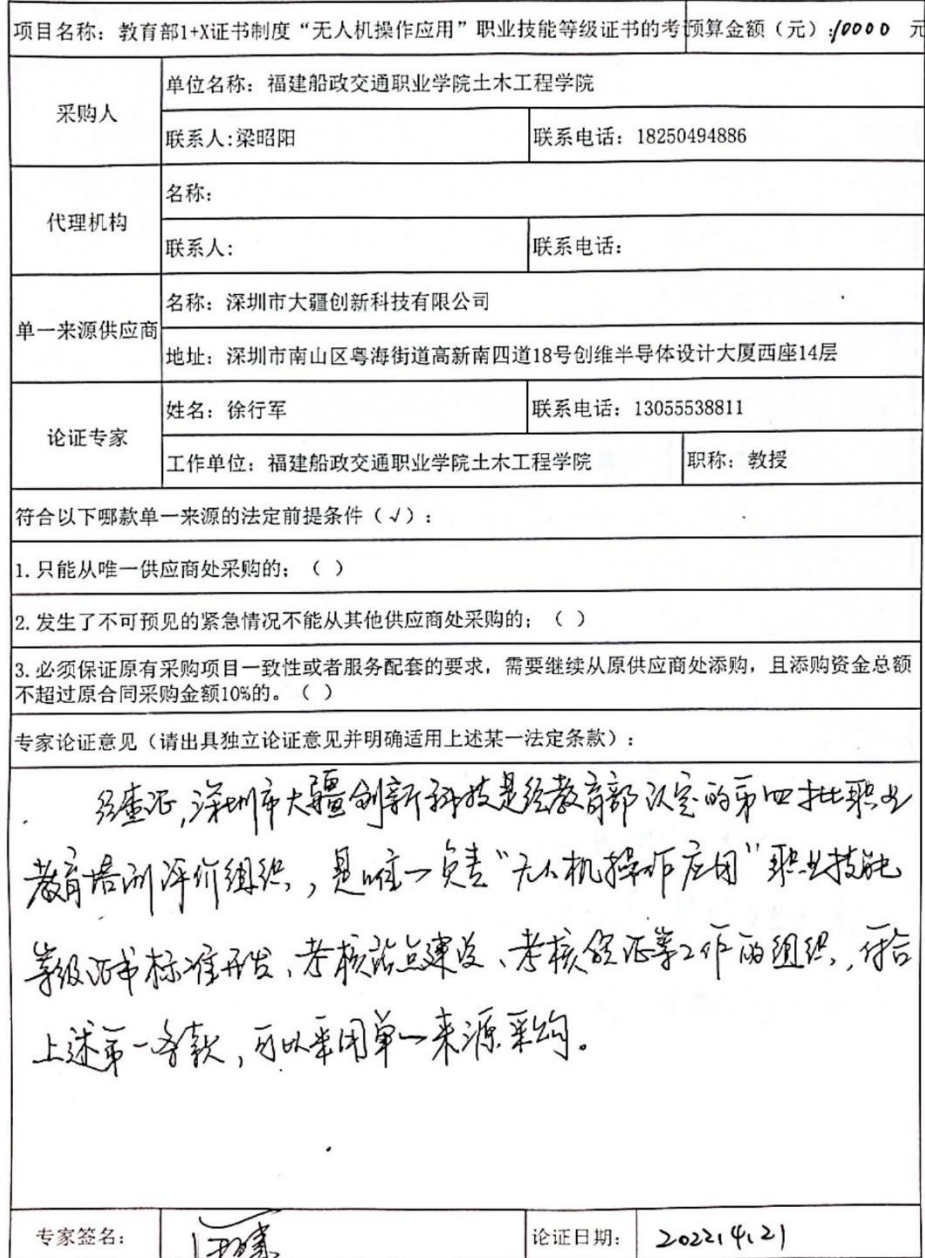 项目名称：教育部1+X证书制度“无人机操作应用”职业技能等级证书的考 预算金额（元）:10000 元
采购人
单位名称：福建船政交通职业学院土木工程学院
联系人:梁昭阳 联系电话：18250494886
代理机构
名称：
联系人: 联系电话：
单一来源供应商
名称：深圳市大疆创新科技有限公司
地址：深圳市南山区粤海街道高新南四道18号创维半导体设计大厦西座14层
论证专家
姓名：徐行军 联系电话：13055538811
工作单位：福建船政交通职业学院土木工程学院 职称：教授
符合以下哪款单一来源的法定前提条件（√）：
1.只能从唯一供应商处采购的；（ ）
2.发生了不可预见的紧急情况不能从其他供应商处采购的；（ ）
3.必须保证原有采购项目一致性或者服务配套的要求，需要继续从原供应商处添购，且添购资金总额
不超过原合同采购金额10%的。（ ）
专家论证意见（请出具独立论证意见并明确适用上述某一法定条款）：
经查证,深圳市大疆创新科技是经教育部认定的第四批职业
教育培训评价组织，是唯一负责“无人机操作应用”职业技能
等级证书标准开发、考核站点建设、考核颁证等工作的组织，符合
上述第一条款，可以采用单一来源采购。
专家签名： 论证日期： 2022,4,21